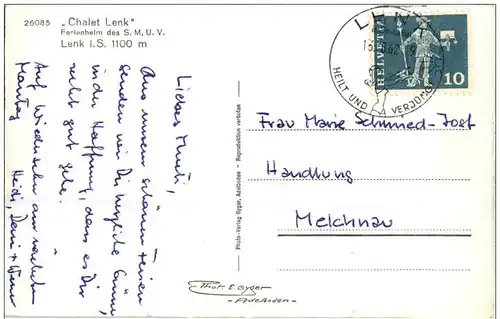 26085 „Chalet Lenk"
Ferienheim des S.M.U.V.
Lenk I.S. 1100 m
Liebes Mutti,
Aus unsern schönen Ferien
senden wir Dir herzliche Grüsse,
in der Hoffnung, dass es Dir
recht gut gehe.
Auf Wiedersehn am nächsten
Montag Heidi,
Photo-Verlag Gyger, Adelboden - Reproduktion verboten
Phot. E. Gyger
- Adelboden -
LENK
HEILT UND VERJÜNGT
HELVETIA
10
Frau Marie Schmied-Jost
Handlung
Melchnau